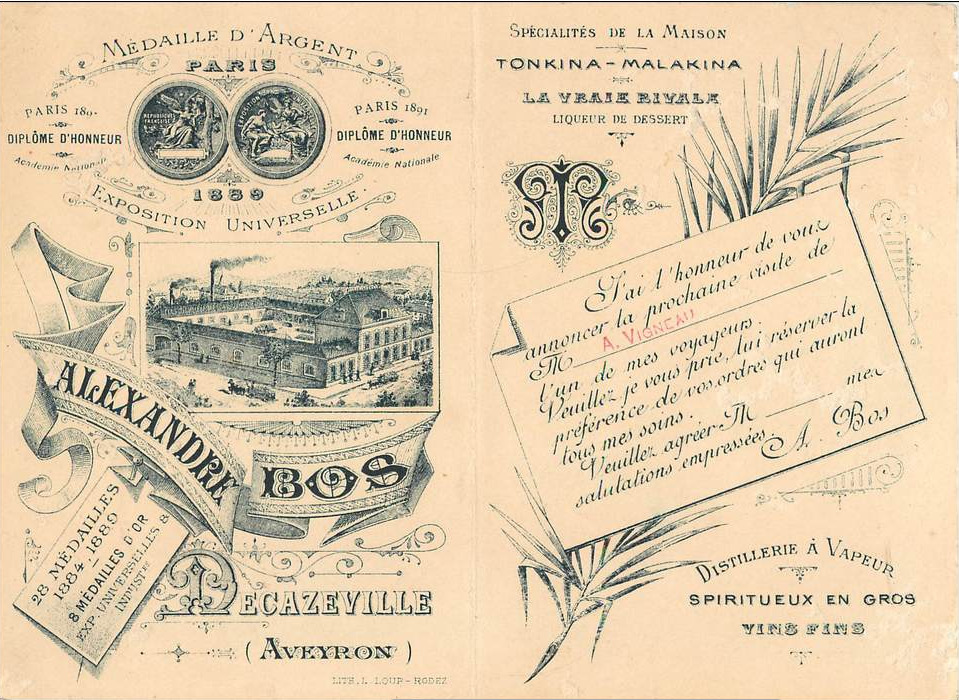 MÉDAILLE D'ARGENT
PARIS
PARIS 189-
DIPLÔME D'HONNEUR
Académie Nationale
RÉPUBLIQUE
FRANÇAISE
PARIS 1891
DIPLÔME D'HONNEUR
Académie Nationale
1889
EXPOSITION UNIVERSELLE
ALEXANDRE
BOS
28 MÉDAILLES
1884-1889
8 MÉDAILLES D'OR
EXP. UNIVERSELLES &
DECAZEVILLE
(AVEYRON)
LITH. L. LOUP-RODEZ
SPÉCIALITÉS DE LA MAISON
TONKINA-MALAKINA
LA VRAIE RIVALE
LIQUEUR DE DESSERT
J'ai l'honneur de vous
annoncer la prochaine visite de
M A. VIGNEAU
l'un de mes voyageurs.
Veuillez je vous prie, lui réserver la
préférence de vos ordres qui auront
tous mes soins.
Veuillez agréer M mes
salutations empressées
A. Bos
DISTILLERIE À VAPEUR
SPIRITUEUX EN GROS
VINS FINS